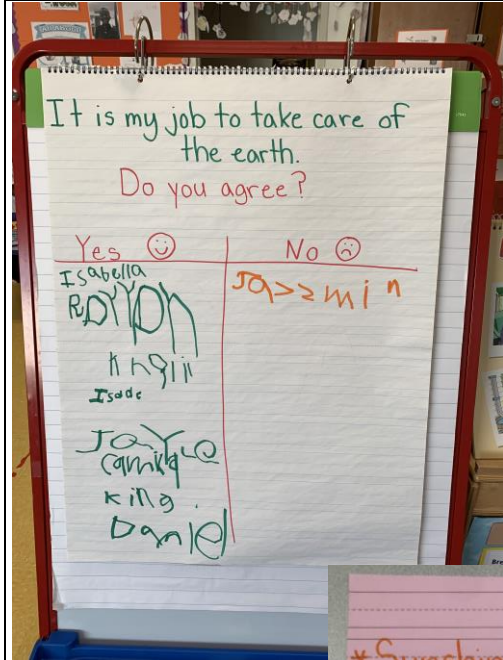 It is my job to take care of
the earth.
Do you agree?
Yes
No
Isabella
Jazzmin
Isade
Camila
King
Daniel